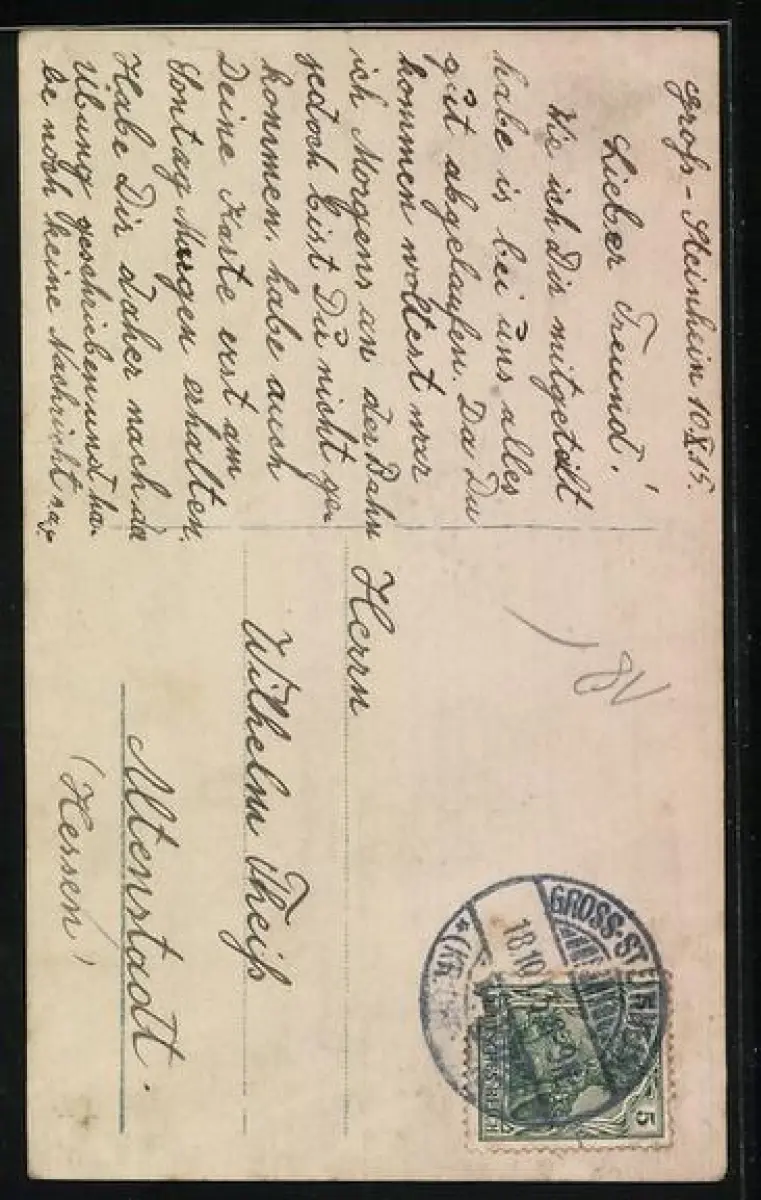 Groß-Steinheim 10.X.15.
Lieber Freund!
Wie ich Dir mitgeteilt
habe is bei uns alles
gut abgelaufen. Da Du
kommen woltest war
ich Morgens an der Bahn
jedoch bist Du nicht ge-
kommen. habe auch
Deine Karte erst am
Sontag Morgen erhalten.
Habe Dir daher nach da
Übung geschrieben und ha-
be noch keine Nachricht
Herrn
Wilhelm Theiß
Altenstadt.
(Hessen)
GROSS-STEINHEIM
18.10
DEUTSCHES REICH
5